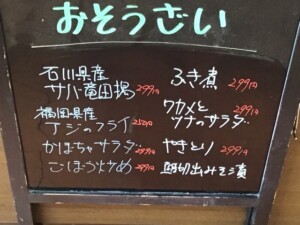 おそうざい
石川県産
サバ竜田揚 299円
福岡県産
アジのフライ 250円
かぼちゃサラダ 299円
ごぼう炒め 299円
ふき煮 299円
ワカメと
ツナのサラダ
やきとり 299円
豚切出みそ漬